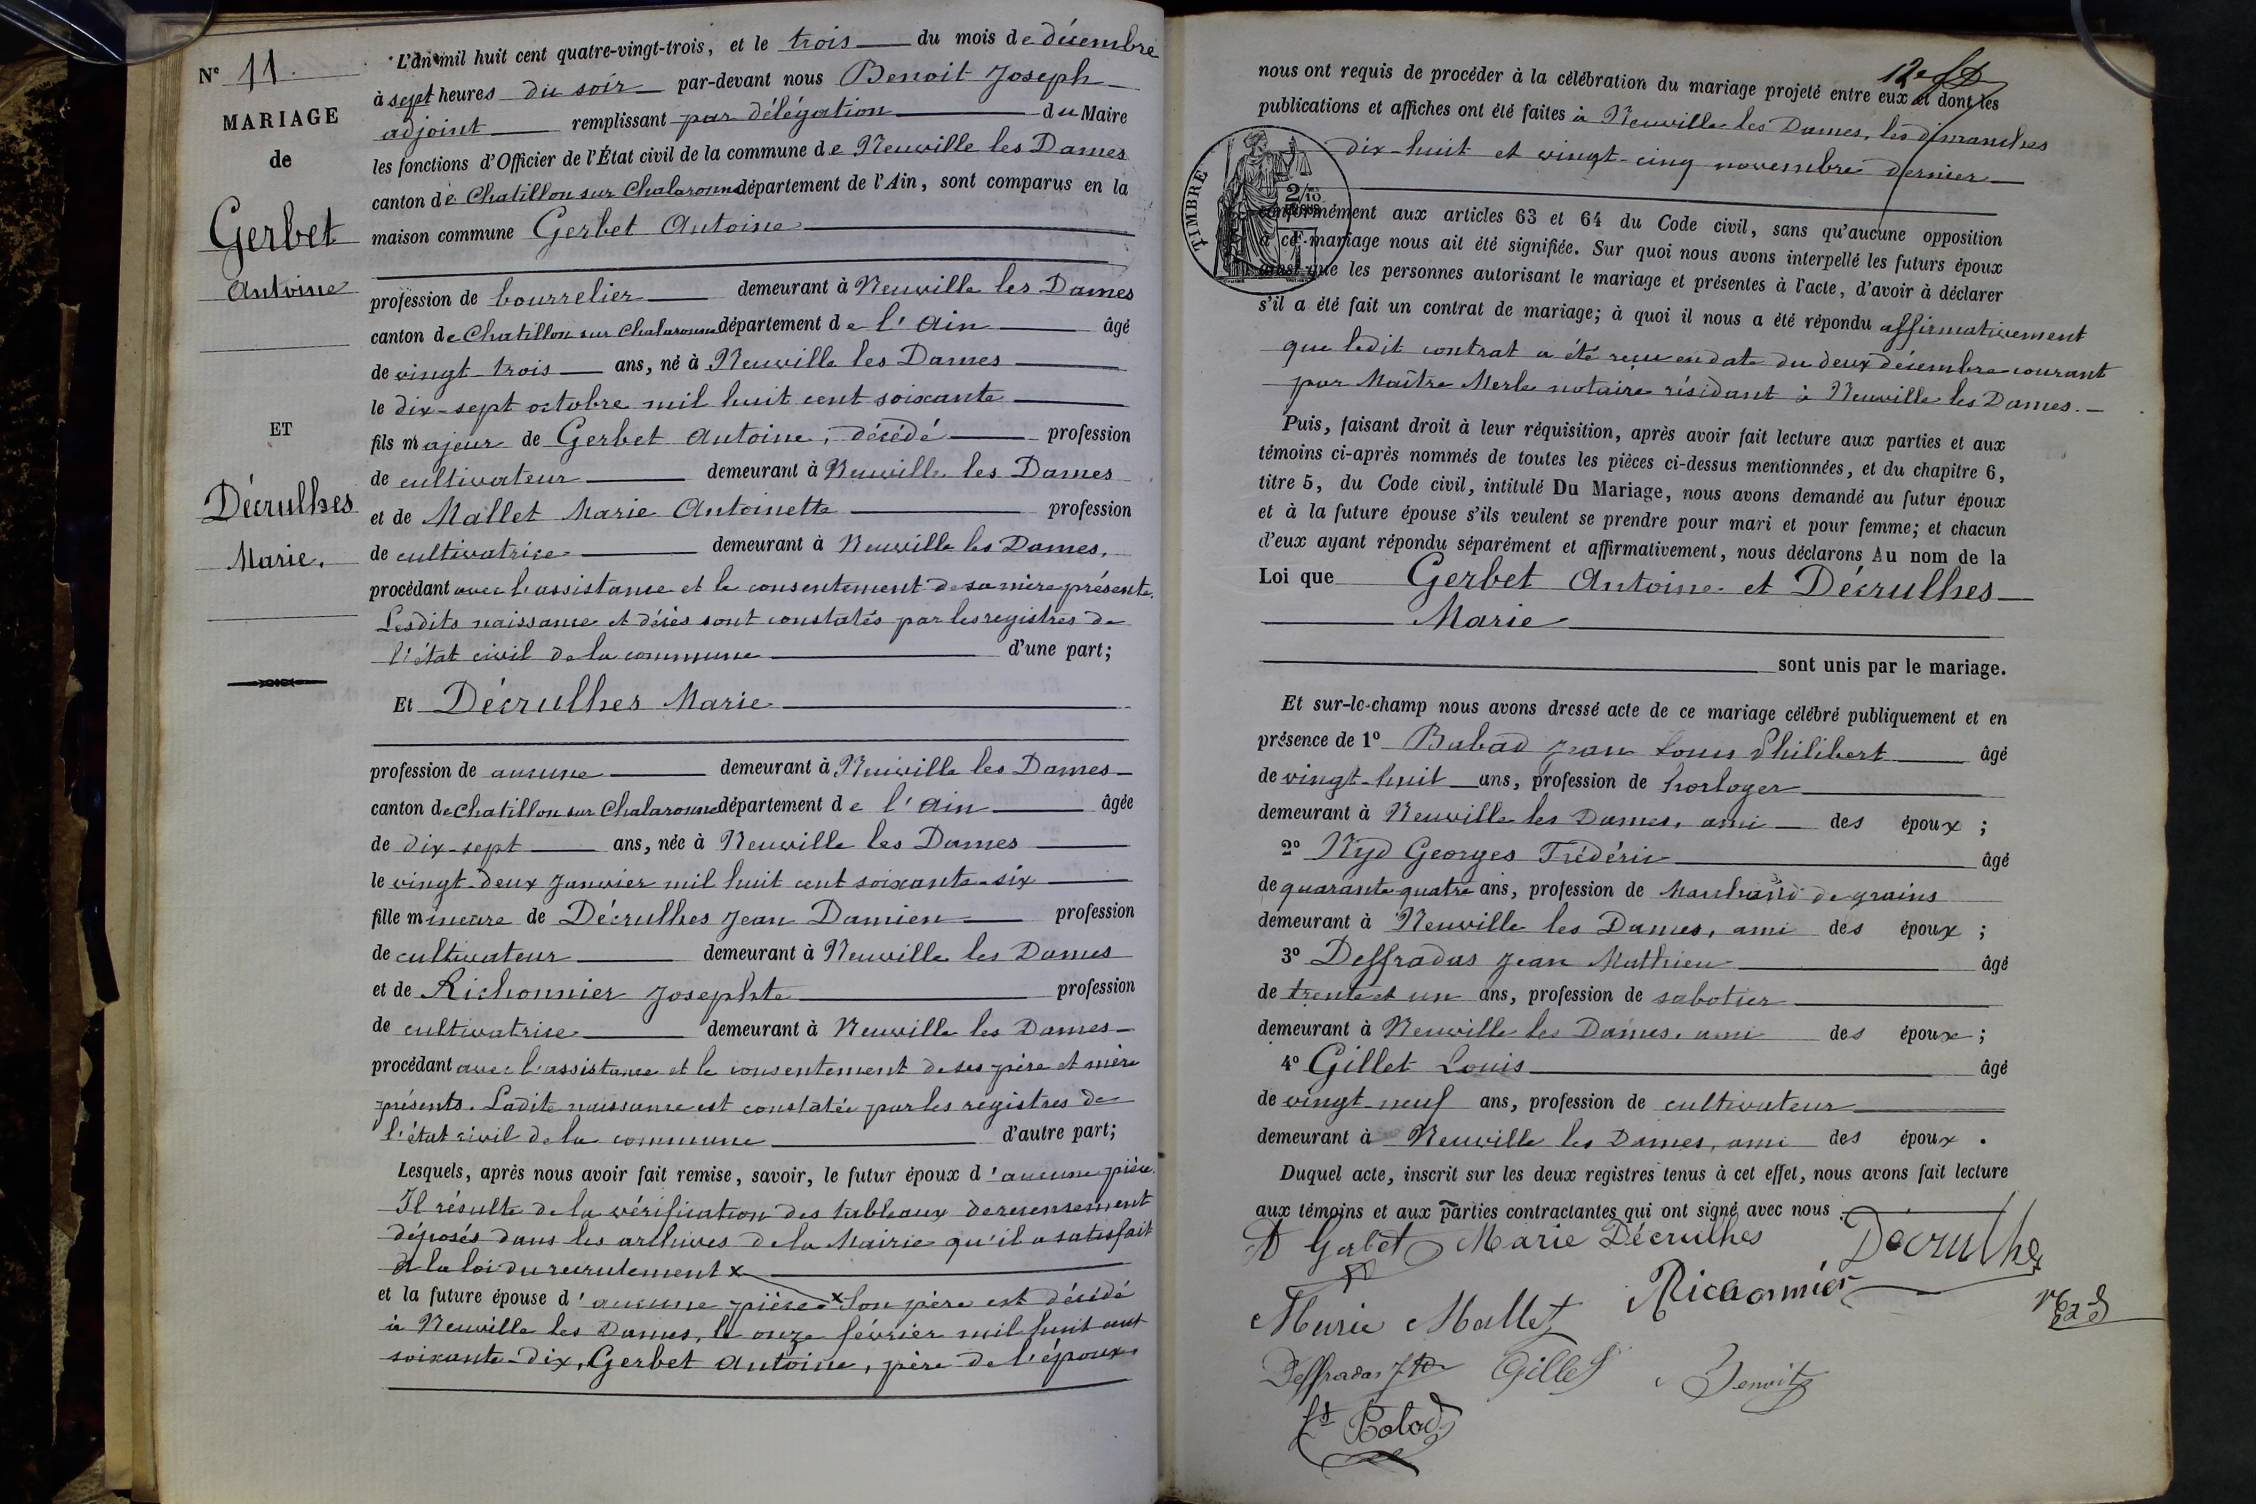 N° 11.
MARIAGE
de
Gerbet
Antoine
ET
Décrulhes
Marie.
L'an mil huit cent quatre-vingt-trois, et le trois du mois de décembre
à sept heures du soir par-devant nous Benoit Joseph
adjoint remplissant par délégation du Maire
les fonctions d'Officier de l'État civil de la commune de Neuville les Dames
canton de Chatillon sur Chalaronne département de l'Ain, sont comparus en la
maison commune Gerbet Antoine
profession de bourrelier demeurant à Neuville les Dames
canton de Chatillon sur Chalaronne département de l'Ain âgé
de vingt-trois ans, né à Neuville les Dames
le dix-sept octobre mil huit cent soixante
fils majeur de Gerbet Antoine, décédé profession
de cultivateur demeurant à Neuville les Dames
et de Mallet Marie Antoinette profession
de cultivatrice demeurant à Neuville les Dames,
procédant avec l'assistance et le consentement de sa mère présente.
Lesdits naissance et décès sont constatés par les registres de
l'état civil de la commune d'une part;
Et Décrulhes Marie
profession de aucune demeurant à Neuville les Dames
canton de Chatillon sur Chalaronne département de l'Ain âgée
de dix-sept ans, née à Neuville les Dames
le vingt-deux Janvier mil huit cent soixante-six
fille mineure de Décrulhes Jean Damien profession
de cultivateur demeurant à Neuville les Dames
et de Richonnier Josephte profession
de cultivatrice demeurant à Neuville les Dames
procédant avec l'assistance et le consentement de ses père et mère
présents. Ladite naissance est constatée par les registres de
l'état civil de la commune d'autre part;
Lesquels, après nous avoir fait remise, savoir, le futur époux d'aucune pièce.
Il résulte de la vérification des tableaux de recensement
déposés dans les archives de la Mairie qu'il a satisfait
à la loi du recrutement x
et la future épouse d'aucune pièce. x Son père est décédé
à Neuville les Dames, le onze février mil huit cent
soixante-dix, Gerbet Antoine, père de l'époux
12e
nous ont requis de procéder à la célébration du mariage projeté entre eux et dont les
publications et affiches ont été faites à Neuville les Dames, les dimanches
dix-huit et vingt-cinq novembre dernier
TIMBRE
conformément aux articles 63 et 64 du Code civil, sans qu'aucune opposition
à ce mariage nous ait été signifiée. Sur quoi nous avons interpellé les futurs époux
ainsi que les personnes autorisant le mariage et présentes à l'acte, d'avoir à déclarer
s'il a été fait un contrat de mariage; à quoi il nous a été répondu affirmativement
que ledit contrat a été reçu en date du deux décembre courant
par Maître Merle notaire résidant à Neuville les Dames.
Puis, faisant droit à leur réquisition, après avoir fait lecture aux parties et aux
témoins ci-après nommés de toutes les pièces ci-dessus mentionnées, et du chapitre 6,
titre 5, du Code civil, intitulé Du Mariage, nous avons demandé au futur époux
et à la future épouse s'ils veulent se prendre pour mari et pour femme; et chacun
d'eux ayant répondu séparément et affirmativement, nous déclarons Au nom de la
Loi que Gerbet Antoine et Décrulhes
Marie
sont unis par le mariage.
Et sur-le-champ nous avons dressé acte de ce mariage célébré publiquement et en
présence de 1° Babad Jean Louis Philibert âgé
de vingt-huit ans, profession de horloger
demeurant à Neuville les Dames, ami des époux;
2° Nyd Georges Frédéric âgé
de quarante quatre ans, profession de Marchand de grains
demeurant à Neuville les Dames, ami des époux;
3° Deffradas Jean Mathieu âgé
de trente et un ans, profession de sabotier
demeurant à Neuville les Dames, ami des époux;
4° Gillet Louis âgé
de vingt-neuf ans, profession de cultivateur
demeurant à Neuville les Dames, ami des époux.
Duquel acte, inscrit sur les deux registres tenus à cet effet, nous avons fait lecture
aux témoins et aux parties contractantes qui ont signé avec nous.
A Gerbet Marie Décrulhes Décrulhes
Marie Mallet Richonnier
Deffradas Gillet Benoit
Babad